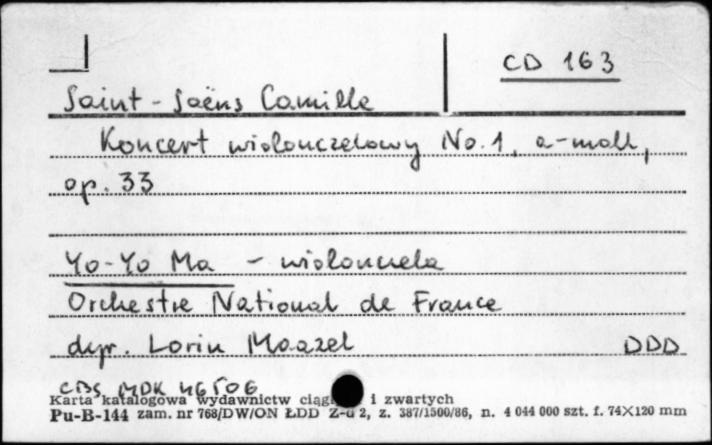 CD 163
Saint-Saëns Camille
Koncert wiolonczelowy No. 1, a-moll,
op. 33
Yo-Yo Ma - wiolonczela
Orchestre National de France
dyr. Lorin Maazel DDD
CBS MDK 46506
Karta katalogowa wydawnictw i zwartych
Pu-B-144 zam. nr 768/DW/ON ŁDD 2, z. 387/1500/86, n. 4 044 000 szt. f. 74X120 mm